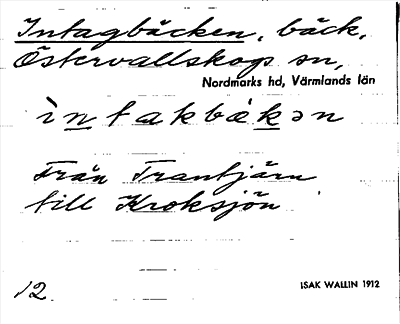 Intagbäcken, bäck,
Östervallskogs sn,
Nordmarks hd, Värmlands län
ìntakbäkən
Från Trantjärn
till Kroksjön
12.
ISAK WALLIN 1912